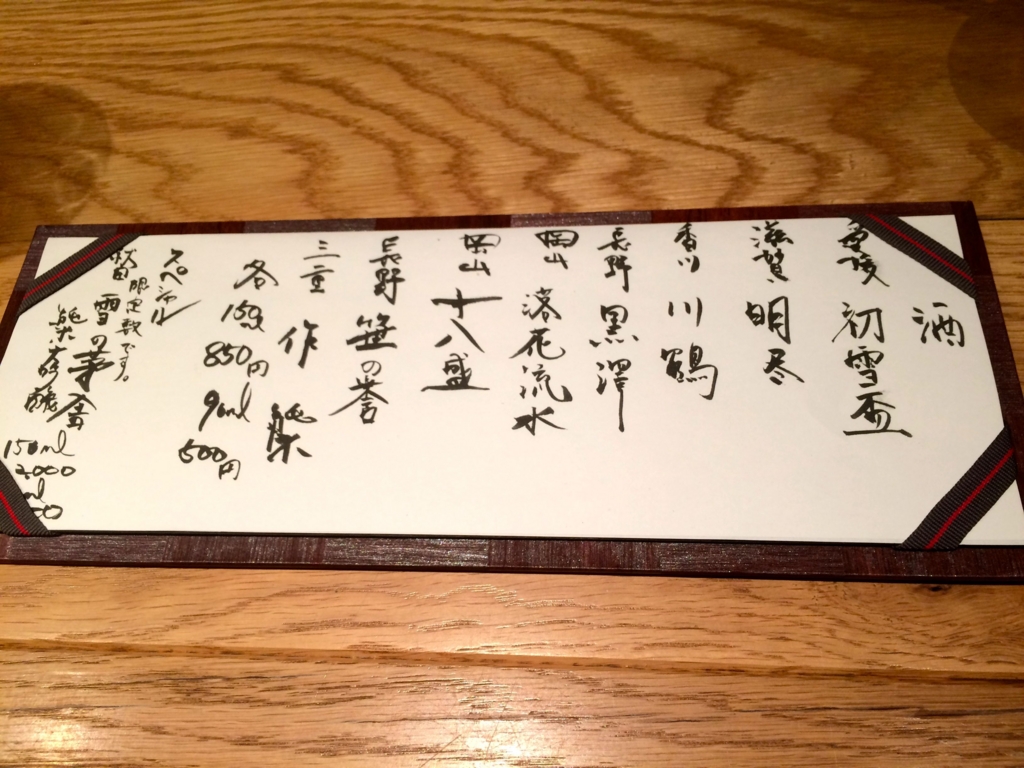 酒
愛媛 初雪盃
滋賀 明尽
香川 川鶴
長野 黒澤
岡山 落花流水
岡山 十八盛
長野 笹の誉
三重 作
各
150ml
850円
90ml
500円
スペシャル
限定数です。
秋田 雪の茅舎
純米吟醸
150ml
2,000